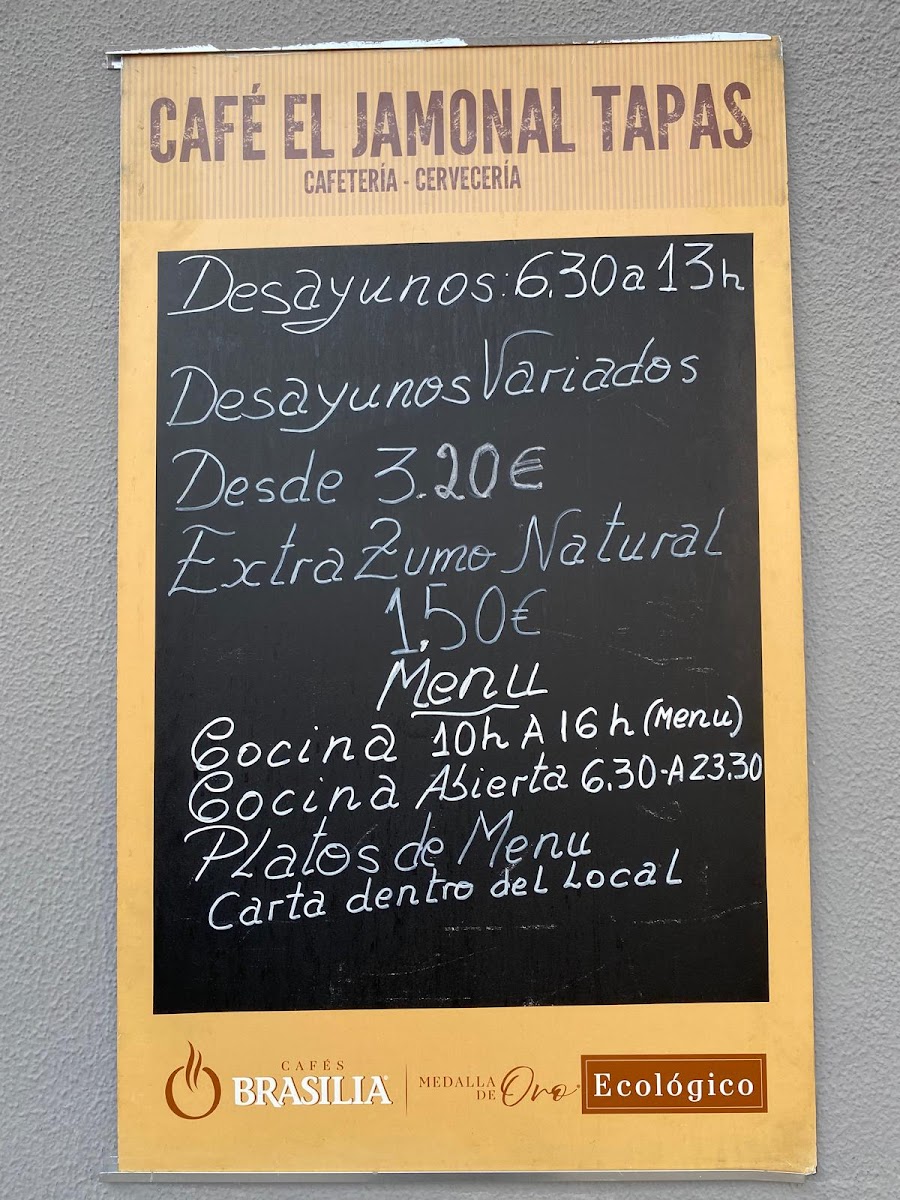 CAFÉ EL JAMONAL TAPAS
CAFETERÍA - CERVECERÍA
Desayunos: 6.30 a 13h
Desayunos Variados
Desde 3.20€
Extra Zumo Natural
1.50€
Menu
Cocina 10h A 16h (Menu)
Cocina Abierta 6.30-A23.30
Platos de Menu
Carta dentro del Local
CAFÉS
BRASILIA
MEDALLA
DE Oro
Ecológico